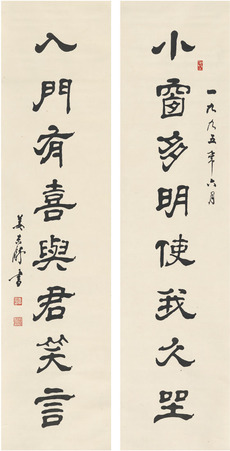 小窗多明使我久坐
一九九五年六月
入門有喜與君笑言
姜東舒書